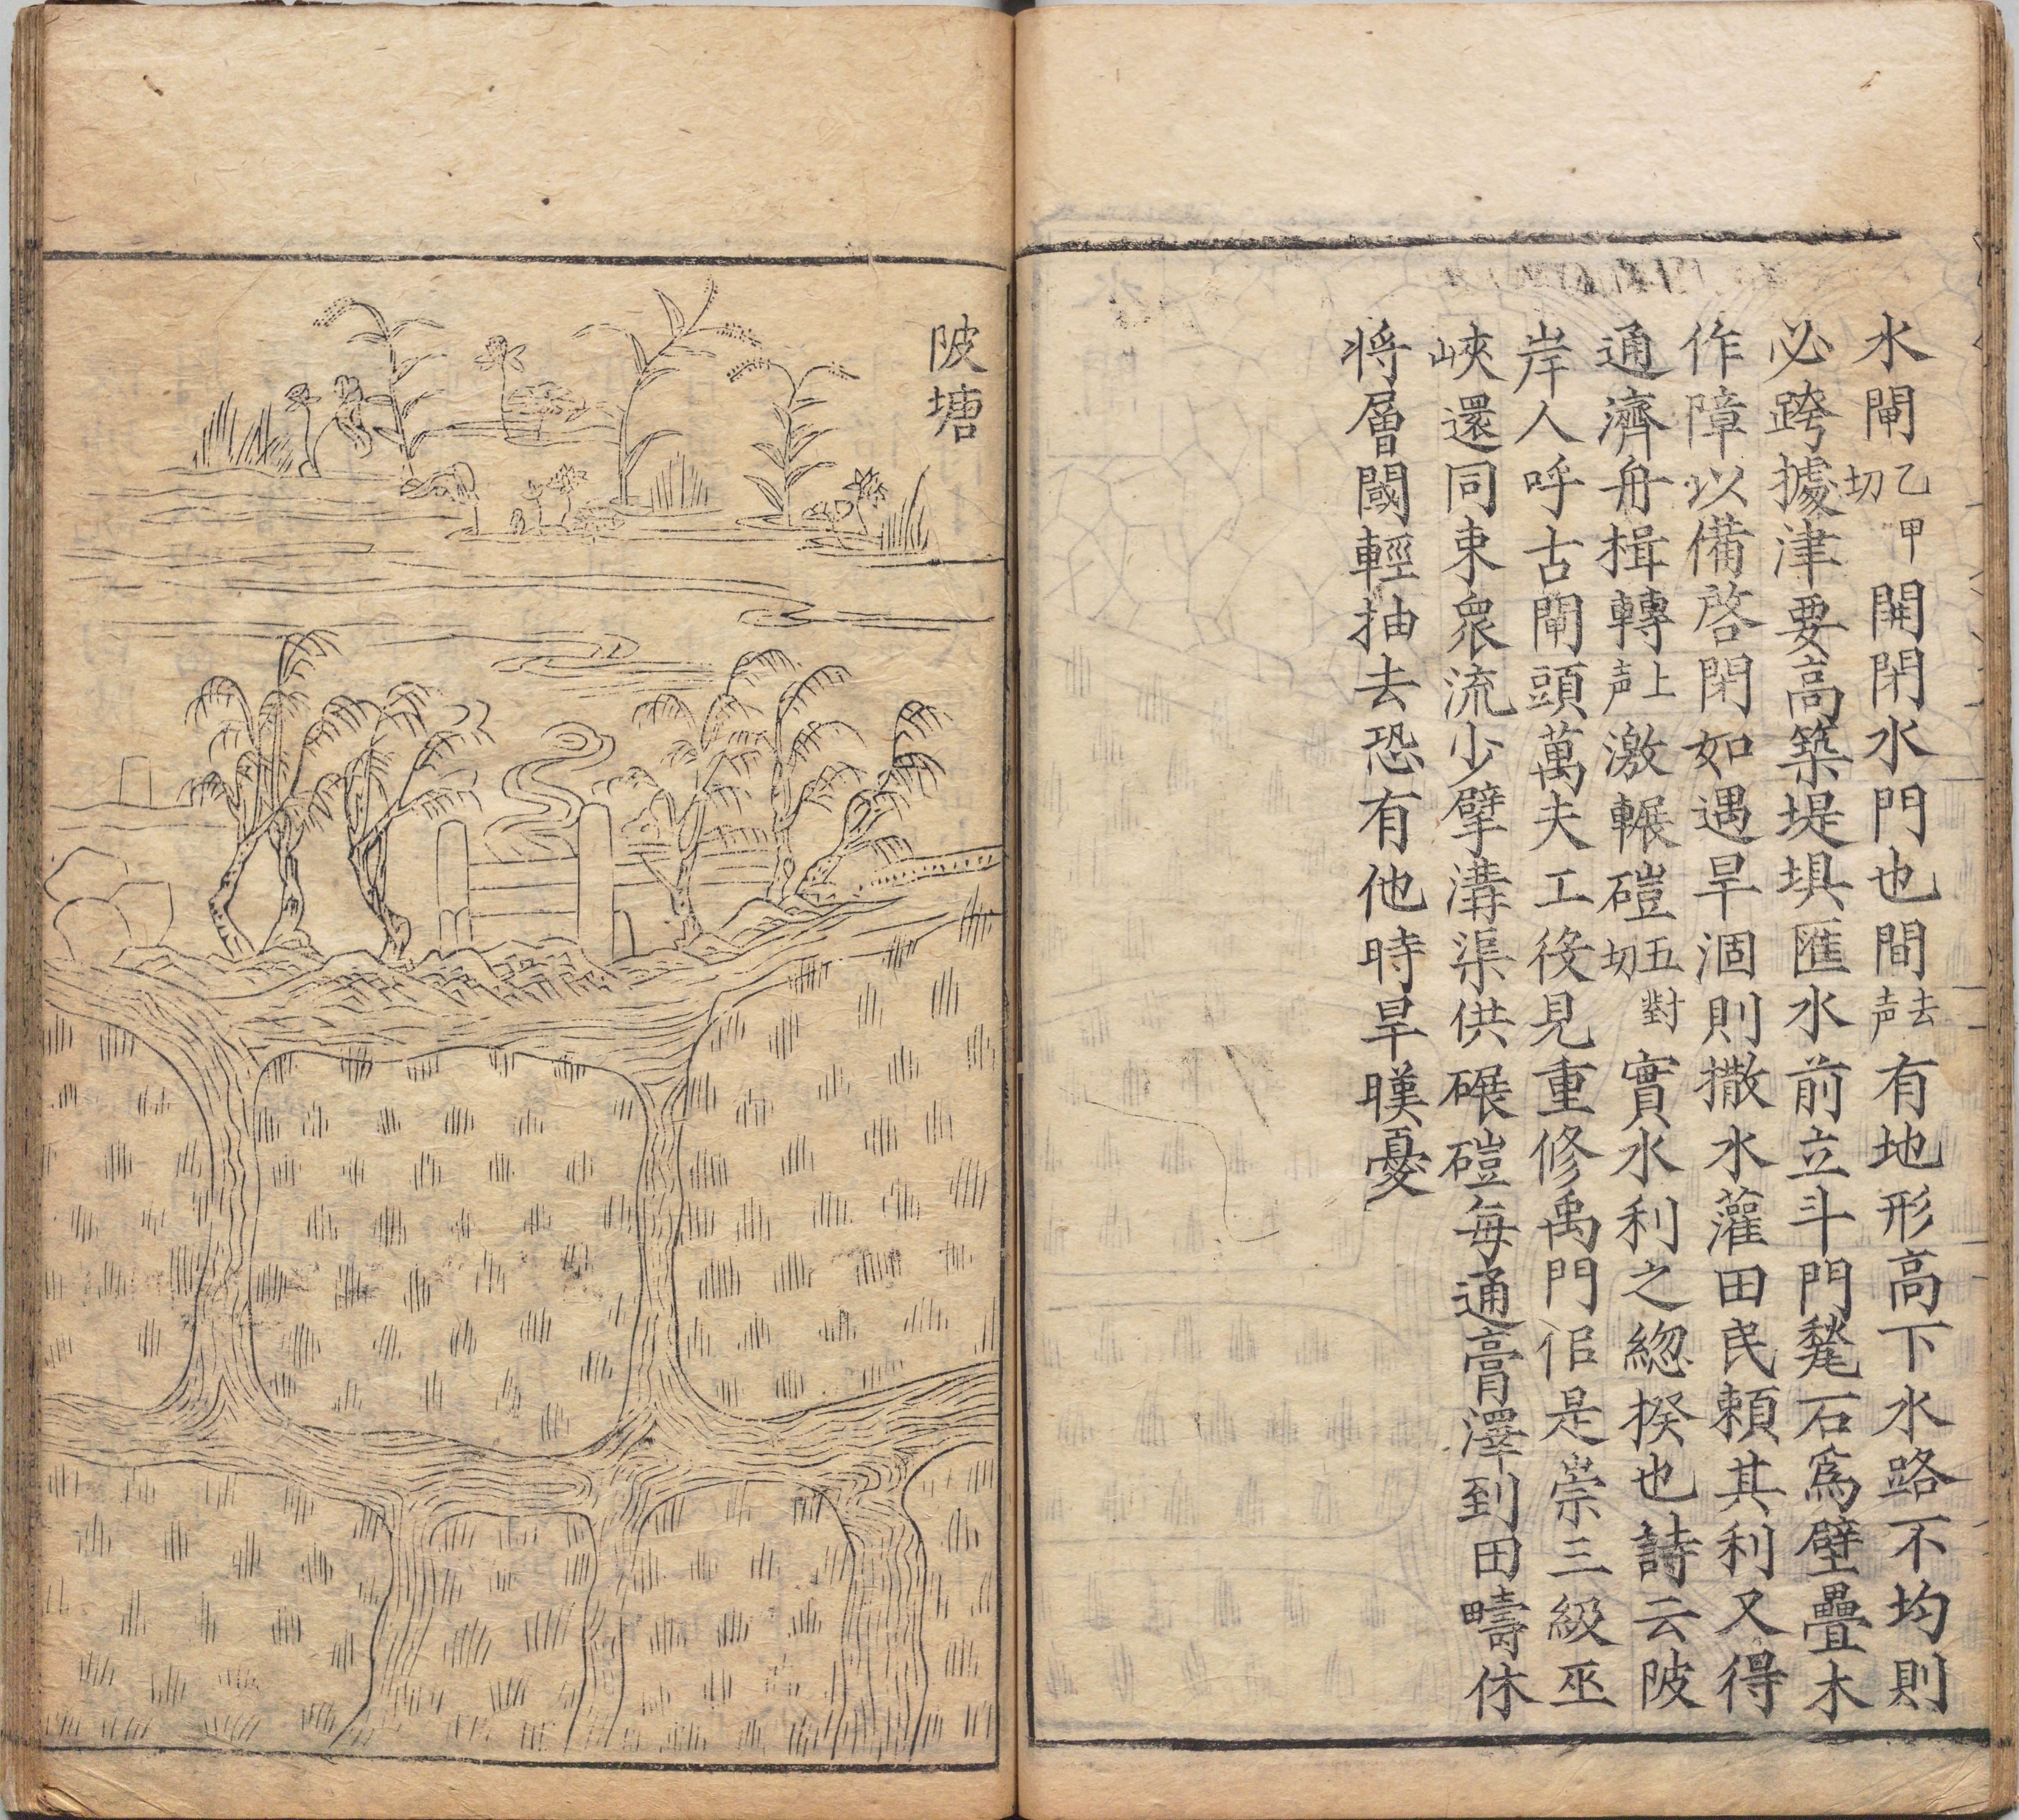 水閘乙甲切開閉水門也間去声有地形高下水路不均則
必跨據津要高築堤埧匯水前立斗門甃石為壁疊木
作障以備啓閉如遇旱涸則撒水灌田民頼其利又得
通濟舟楫轉上声激輾磑五對切實水利之緫揆也詩云陂
岸人呼古閘頭萬夫工役見重修禹門佀是崇三級巫
峽還同束衆流少擘溝渠供碾磑每通膏澤到田疇休
将層閾輕抽去恐有他時旱暵憂
陂塘